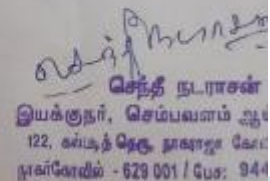 செந்தீ நடராசன்
செந்தீ நடராசன்
இயக்குநர், செம்பவளம் ஆய்
122, கல்மடத் தெரு, நாகராஜா கோ
நாகர்கோவில் - 629 001 / பேச: 944